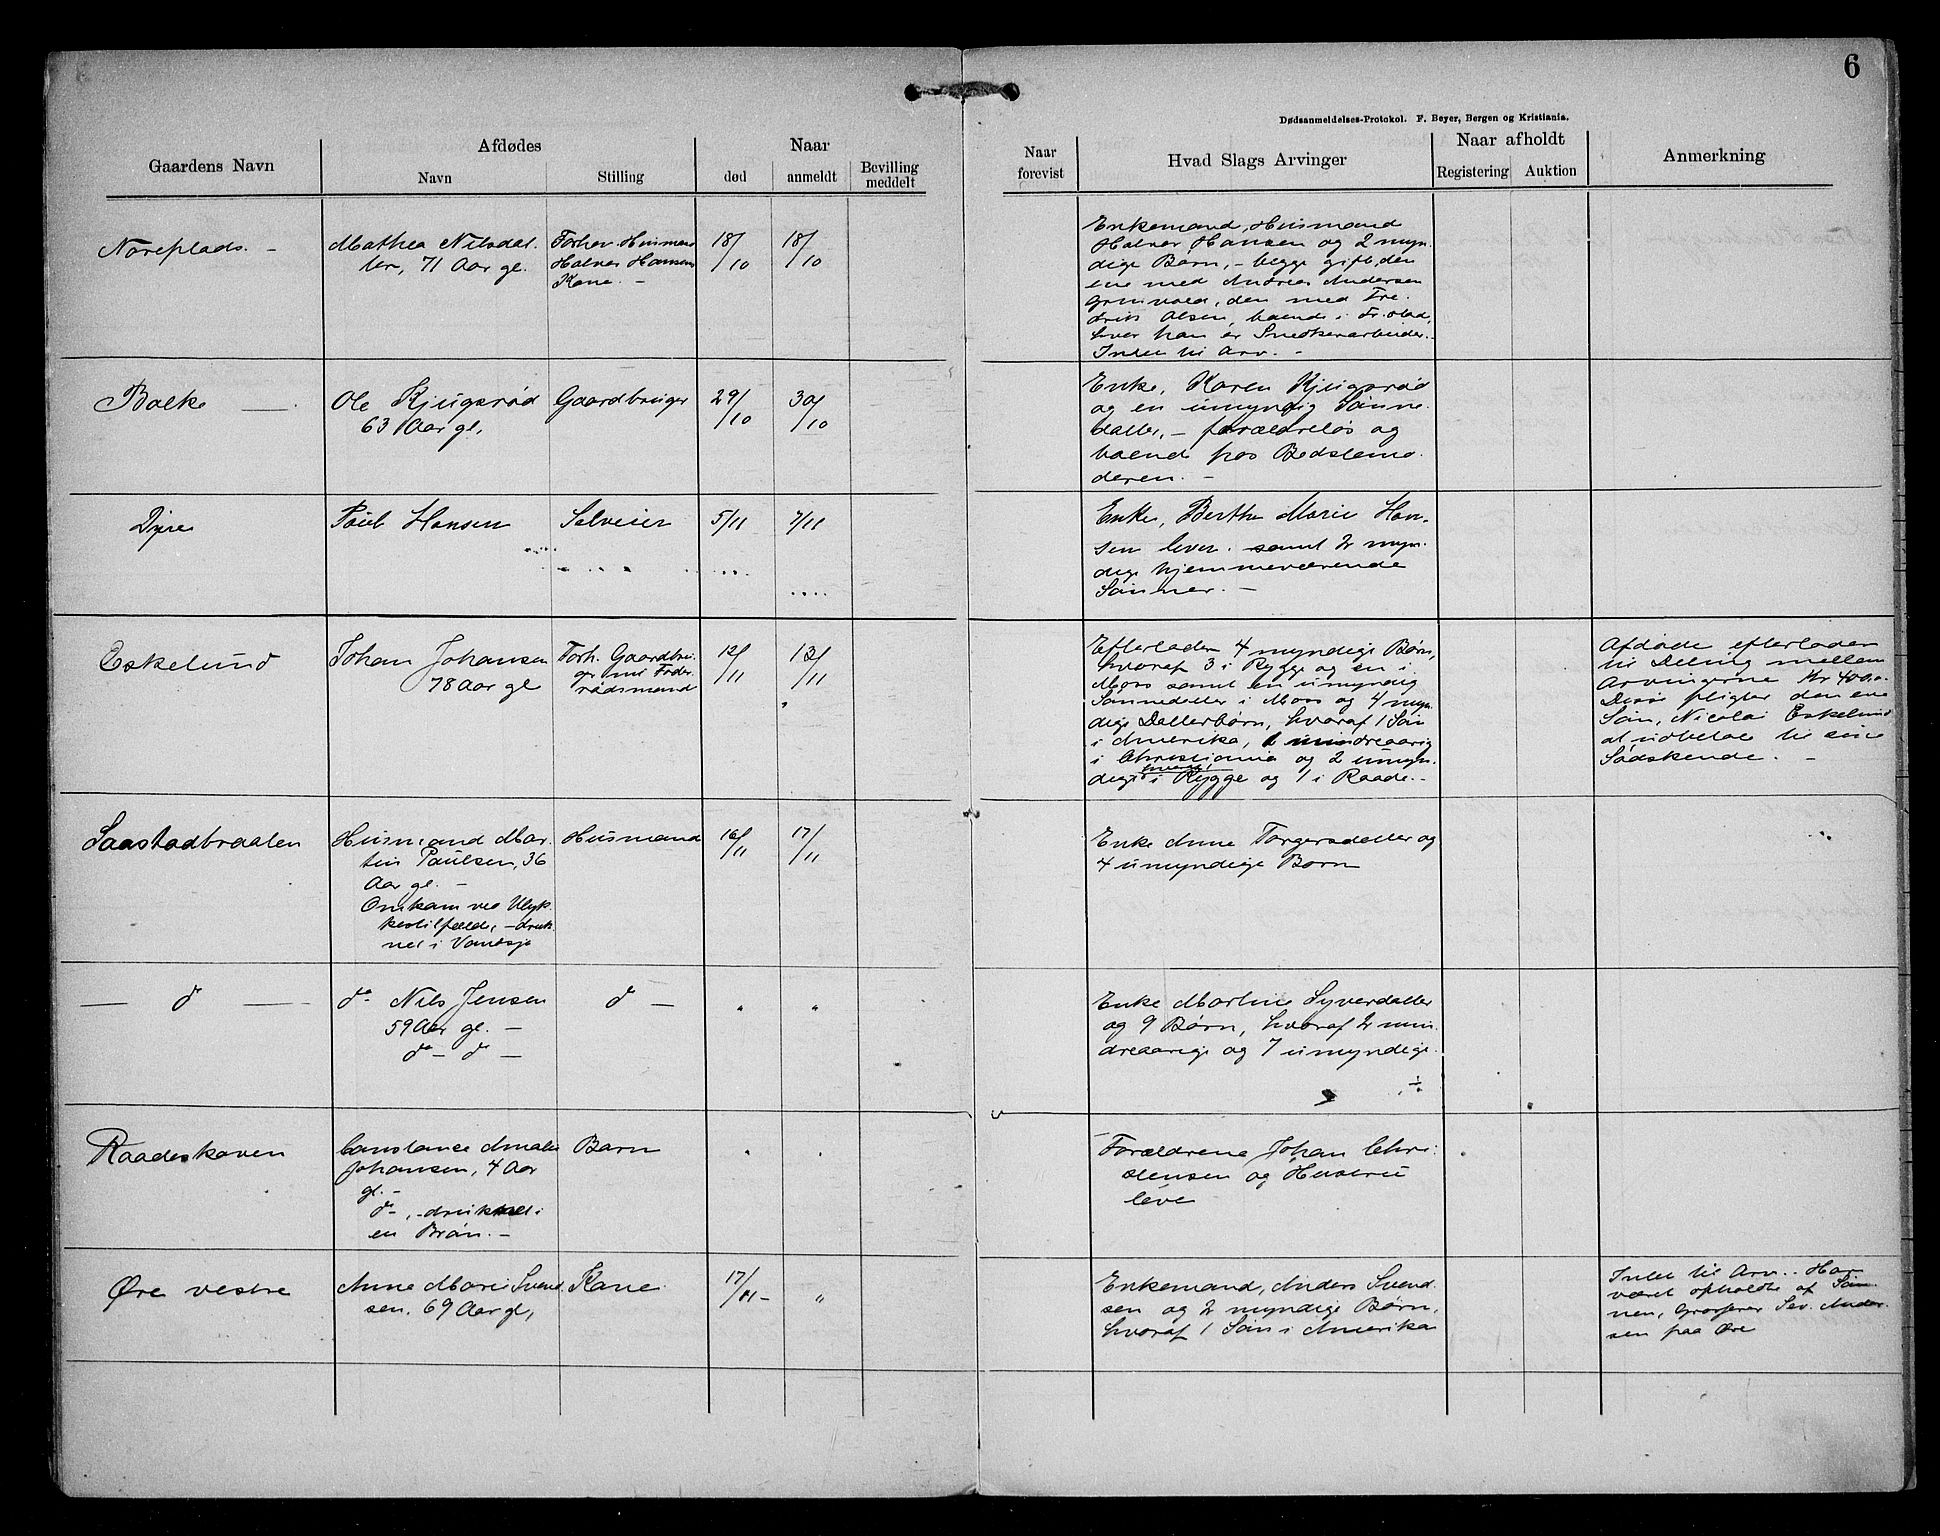 6
Dødsanmeldelses-Protokol. F. Beyer, Bergen og Kristiania.
Gaardens Navn
Afdødes
Navn
Stilling
Naar
død
anmeldt
Bevilling meddelt
Naar forevist
Hvad Slags Arvinger
Naar afholdt
Registering
Auktion
Anmerkning
Noreplads. –
Mathea Nilsdat-
ter, 71 Aar gl.
Forhev. Husmand
Halvor Hansens
Kone. –
18/10
18/10
Enkemand, Husmand
Halvor Hansen og 2 myn-
dige Børn, – begge gift, den
ene med Andreas Andersen
Grinvold, den med Fre-
drik Olsen, boende i Fr.stad,
hvor han er Snedkerarbeider.
Intet til Arv. –
Bolke —
Ole Kjugsrød
63 Aar gl.
Gaardbruger
29/10
30/10
Enke, Karen Kjugsrød
og en umyndig Sønne-
datter, – forældreløs og
boende hos Bedstemo-
deren. –
Dyre
Poul Hansen
Selveier
5/11
7/11
Enke, Berthe Marie Han-
sen lever. samt 2 myn-
dige hjemmeværende
Sønner. –
Eskelund
Johan Johansen
78 Aar gl
Forh. Gaardbru-
ger nu Føde-
rådsmand
12/11
13/11
Efterlader 4 myndige Børn,
hvoraf 3 i Rygge og en i
Moss samt en umyndig
Sønnedatter i Moss og 4 myn-
dige Datterbørn, hvoraf 1 Søn
i Amerika, 1 mindreaarig
i Christiania og 2 umyn-
dige i Rygge og 1 i Raade. –
Afdøde efterlader
til Deling mellem
Arvingerne Kr 400,00
Disse pligter den ene
Søn, Nicolai Eskelund
at udbetale til sine
Södskende. –
Saastadbraaten
Husmand Mar-
tin Paulsen, 36
Aar gl. –
Omkom ved Ulyk-
kestilfælde, – druk-
net i Vandsjø
Husmand
16/11
17/11
Enke Anne Torgersdatter og
4 umyndige Børn
— do —
do Nils Jensen
59 Aar gl. –
do – do –
do –
"
"
Enke Martine Syverdatter
og 9 Børn, hvoraf 2 min-
dreaarige og 7 umyndige.
Raadeskoven
Constance Amalie
Johansen, 4 Aar
gl. –
do –, druknet i
en Brøn. –
Barn
"
"
Forældrene Johan Chri-
stensen og Hustru
leve
Øre vestre
Anne Marie Svend-
sen, 69 Aar gl,
Kone
17/11 –
"
Enkemand, Anders Svend-
sen og 2 myndige Børn,
hvoraf 1 Søn i Amerika
Intet til Arv. . Har
været opholdt af Søn-
nen, Grosserer Sev. Ander-
sen paa Øre